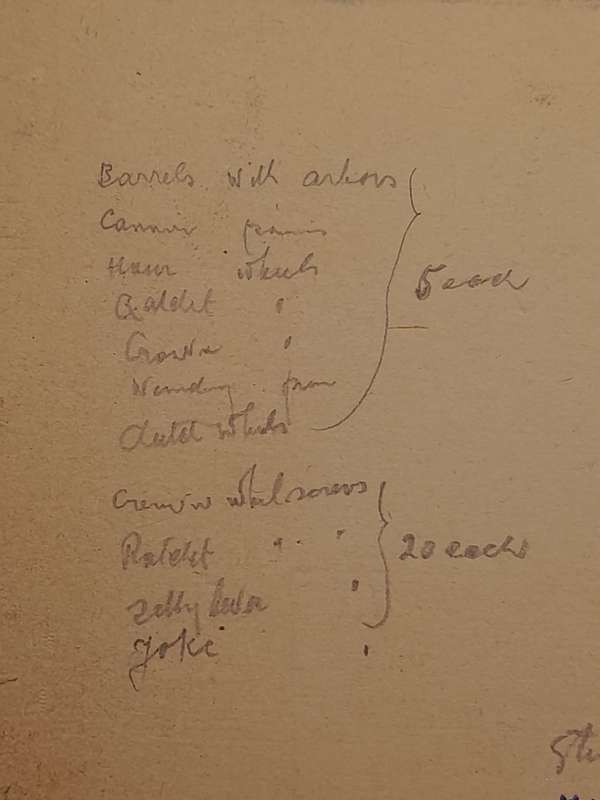 Barrels with arbors
Cannon pinions
Hour wheels
Ratchet "
Crown "
Winding pinion
Clutch wheels
5 each
Crown wheel screws
Ratchet " "
Setting lever "
Yoke "
20 each